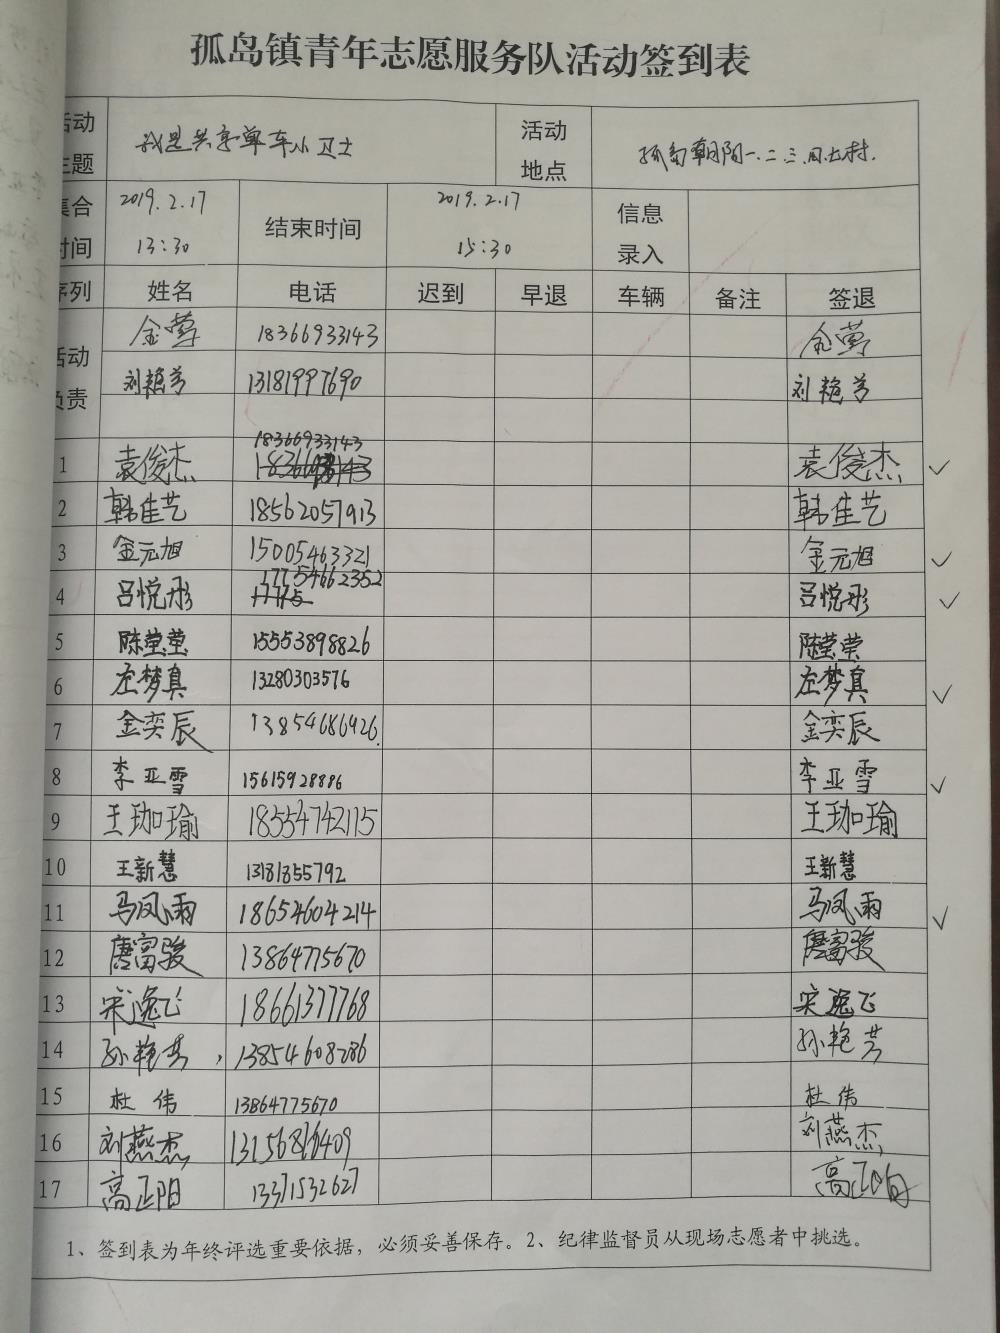 孤岛镇青年志愿服务队活动签到表
活动主题 我是共享单车小卫士 活动地点 孤岛朝阳一.二.三.四.五村.
集合时间 2019.2.17 13:30 结束时间 2019.2.17 15:30 信息录入
序列 姓名 电话 迟到 早退 车辆 备注 签退
活动负责 金莺 18366933143 金莺
刘艳芳 13181997690 刘艳芳
1 袁俊杰 18366933143 袁俊杰 ✓
2 韩佳艺 18562057913 韩佳艺
3 金元旭 15005463321 金元旭 ✓
4 吕悦彤 17754662352 吕悦彤 ✓
5 陈莹莹 15553898826 陈莹莹
6 左梦真 13280303576 左梦真 ✓
7 金奕辰 13854686926. 金奕辰
8 李亚雪 15615928886 李亚雪 ✓
9 王珈瑜 18554742115 王珈瑜
10 王新慧 13181855792 王新慧
11 马凤雨 18654604214 马凤雨 ✓
12 唐富骏 13864775670 唐富骏
13 宋逸飞 18661377768 宋逸飞
14 孙艳芳 13854608286 孙艳芳
15 杜伟 13864775670 杜伟
16 刘燕杰 刘燕杰
17 高正阳 13371532627 高正阳
1、签到表为年终评选重要依据，必须妥善保存。2、纪律监督员从现场志愿者中挑选。